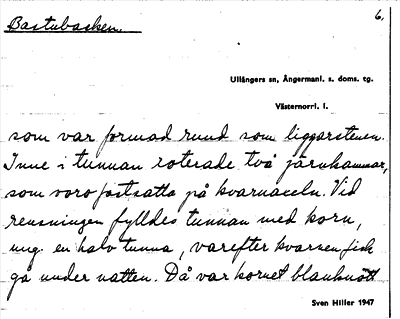 Bastubacken.
6.
Ullångers sn, Ångermanl. s. doms. tg.
Västernorrl. l.
som var formad rund som liggarstenen.
Inne i tunnan roterade två järnhammar,
som voro fastsatta på kvarnaxeln. Vid
rensningen fylldes tunnan med korn,
ung. en halv tunna, varefter kvarnen fick
gå under natten. Då var kornet blanknött
Sven Hiller 1947